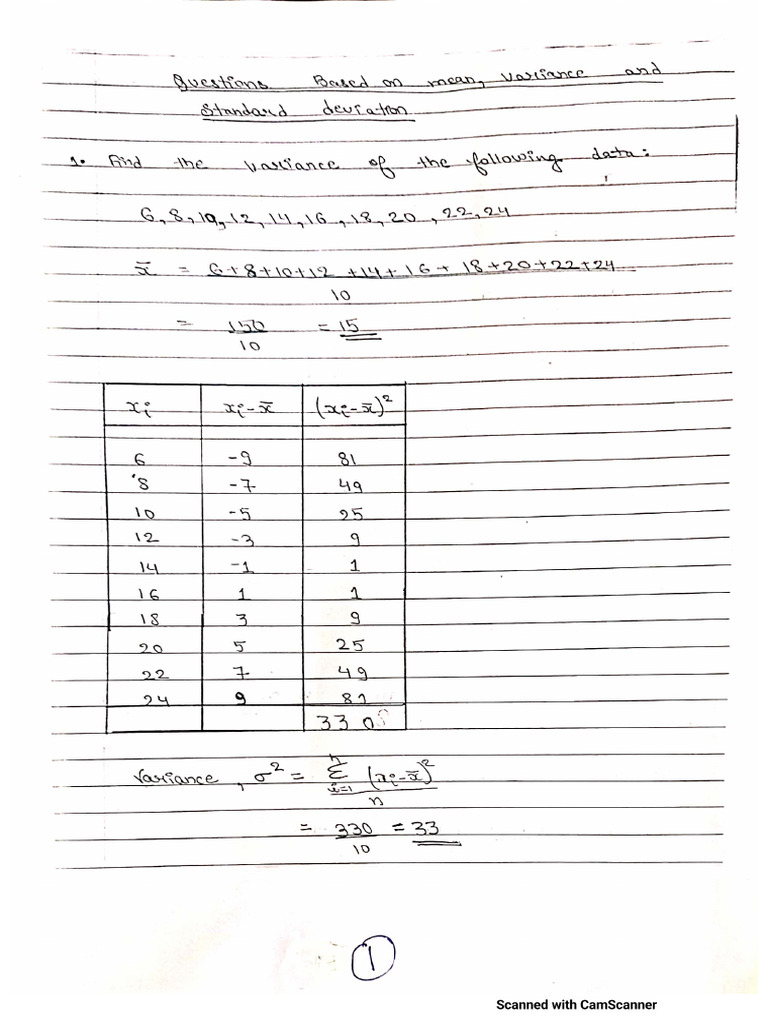 Questions Based on mean, variance and
Standard deviation
1. Find the variance of the following data:
6, 8, 10, 12, 14, 16, 18, 20, 22, 24
x̄ = 6+8+10+12+14+16+18+20+22+24
10
= 150 = 15
10
xi xi-x̄ (xi-x̄)²
6 -9 81
8 -7 49
10 -5 25
12 -3 9
14 -1 1
16 1 1
18 3 9
20 5 25
22 7 49
24 9 81
330
Variance, σ² = n
Σ (xi-x̄)²
i=1
n
= 330 = 33
10
1
Scanned with CamScanner